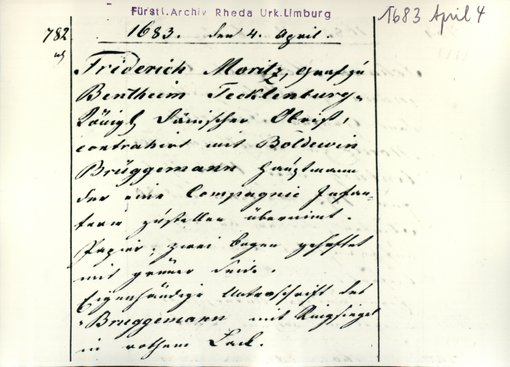 Fürstl. Archiv Rheda Urk. Limburg
1683 April 4
782
1683. den 4. April.
Friderich Moritz, Graf zu
Bentheim Tecklenburg,
Königl Dänischer Obrist,
contrahirt mit Boldewin
Brüggemann Hauptmann
der eine Compagnie Infan-
terie zustellen übernimt.
Papier, zwei bogen geheftet
mit grüner Seide.
Eigenhändige Unterschrift des
Brüggemann mit Ringsiegel
in rothem Lack.